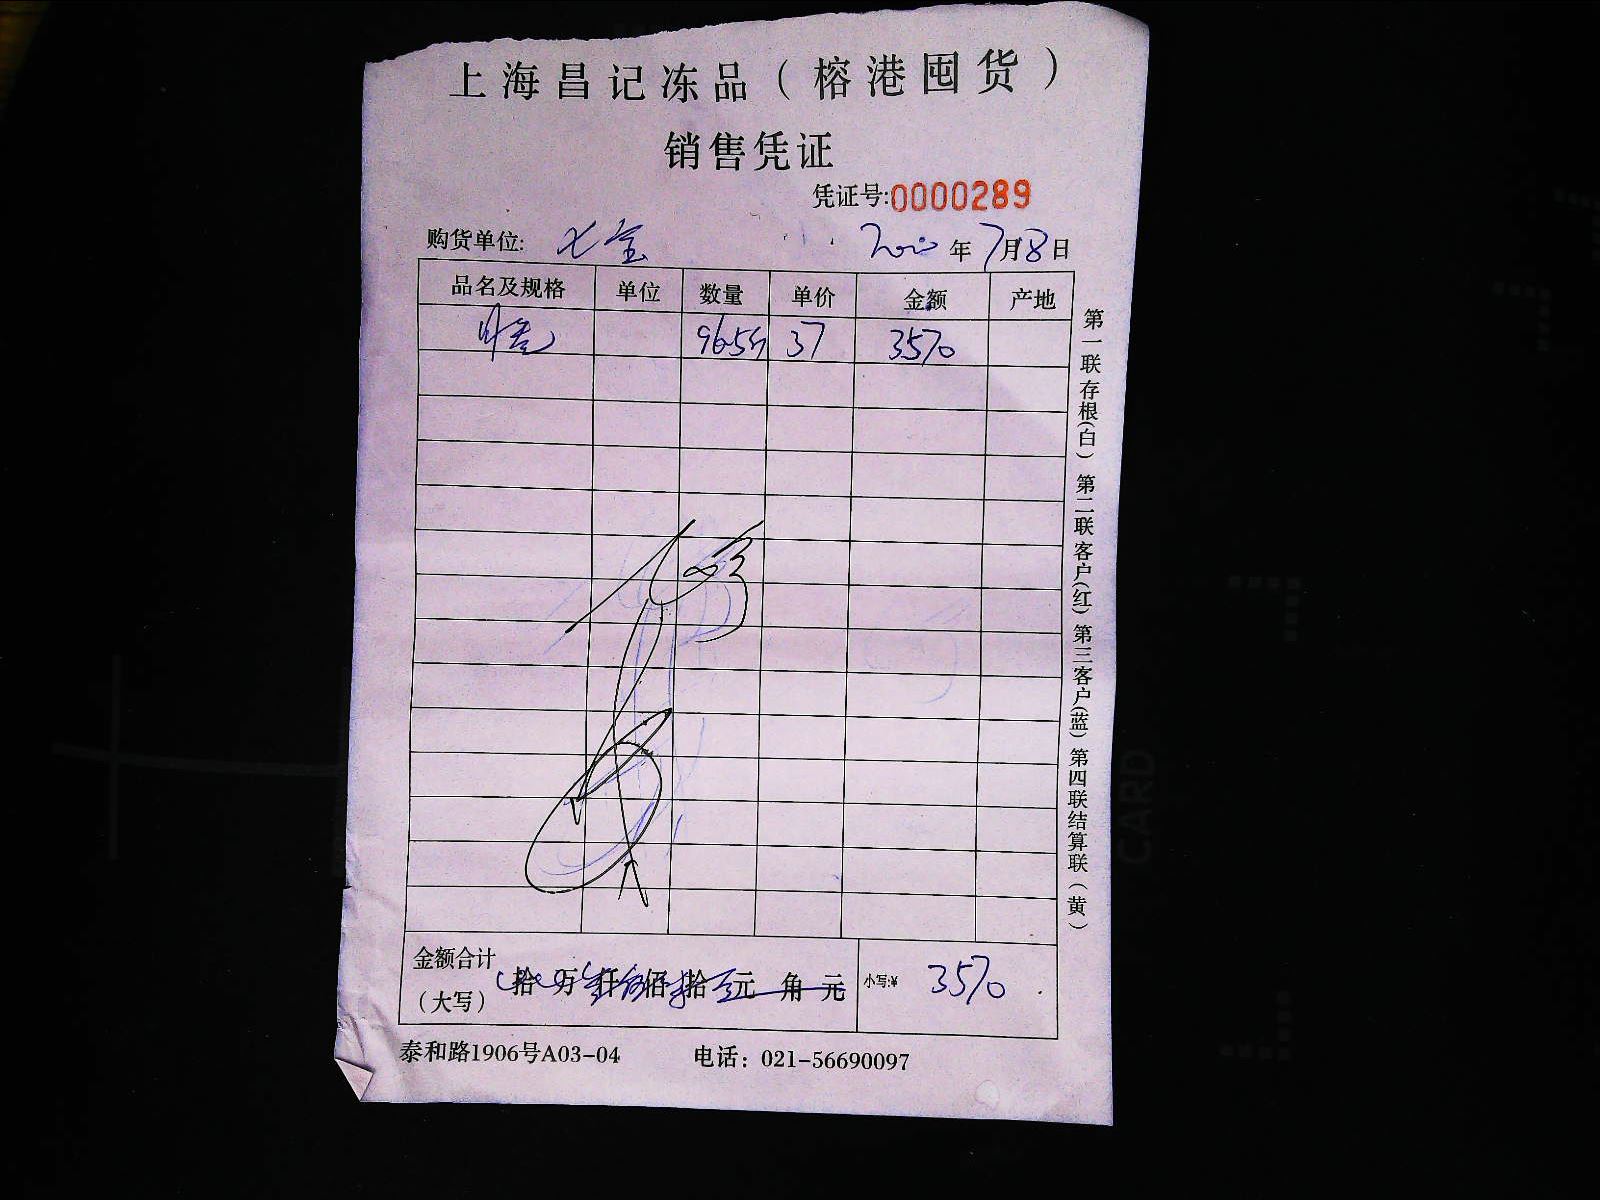 上海昌记冻品（榕港囤货）
销售凭证
凭证号:0000289
购货单位: 七宝 2020年7月8日
品名及规格 单位 数量 单价 金额 产地
96.5斤 37 3570
第一联存根(白) 第二联客户(红) 第三客户(蓝) 第四联结算联(黄)
金额合计
(大写) 拾 万 仟 佰 拾 元 角 元 小写:¥ 3570
泰和路1906号A03-04 电话: 021-56690097